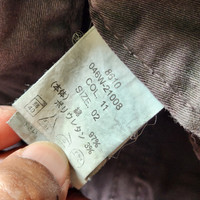 8510
046W-21008
COL. 11
SIZE. 02
(本体)
綿 97%
ポリウレタン 3%